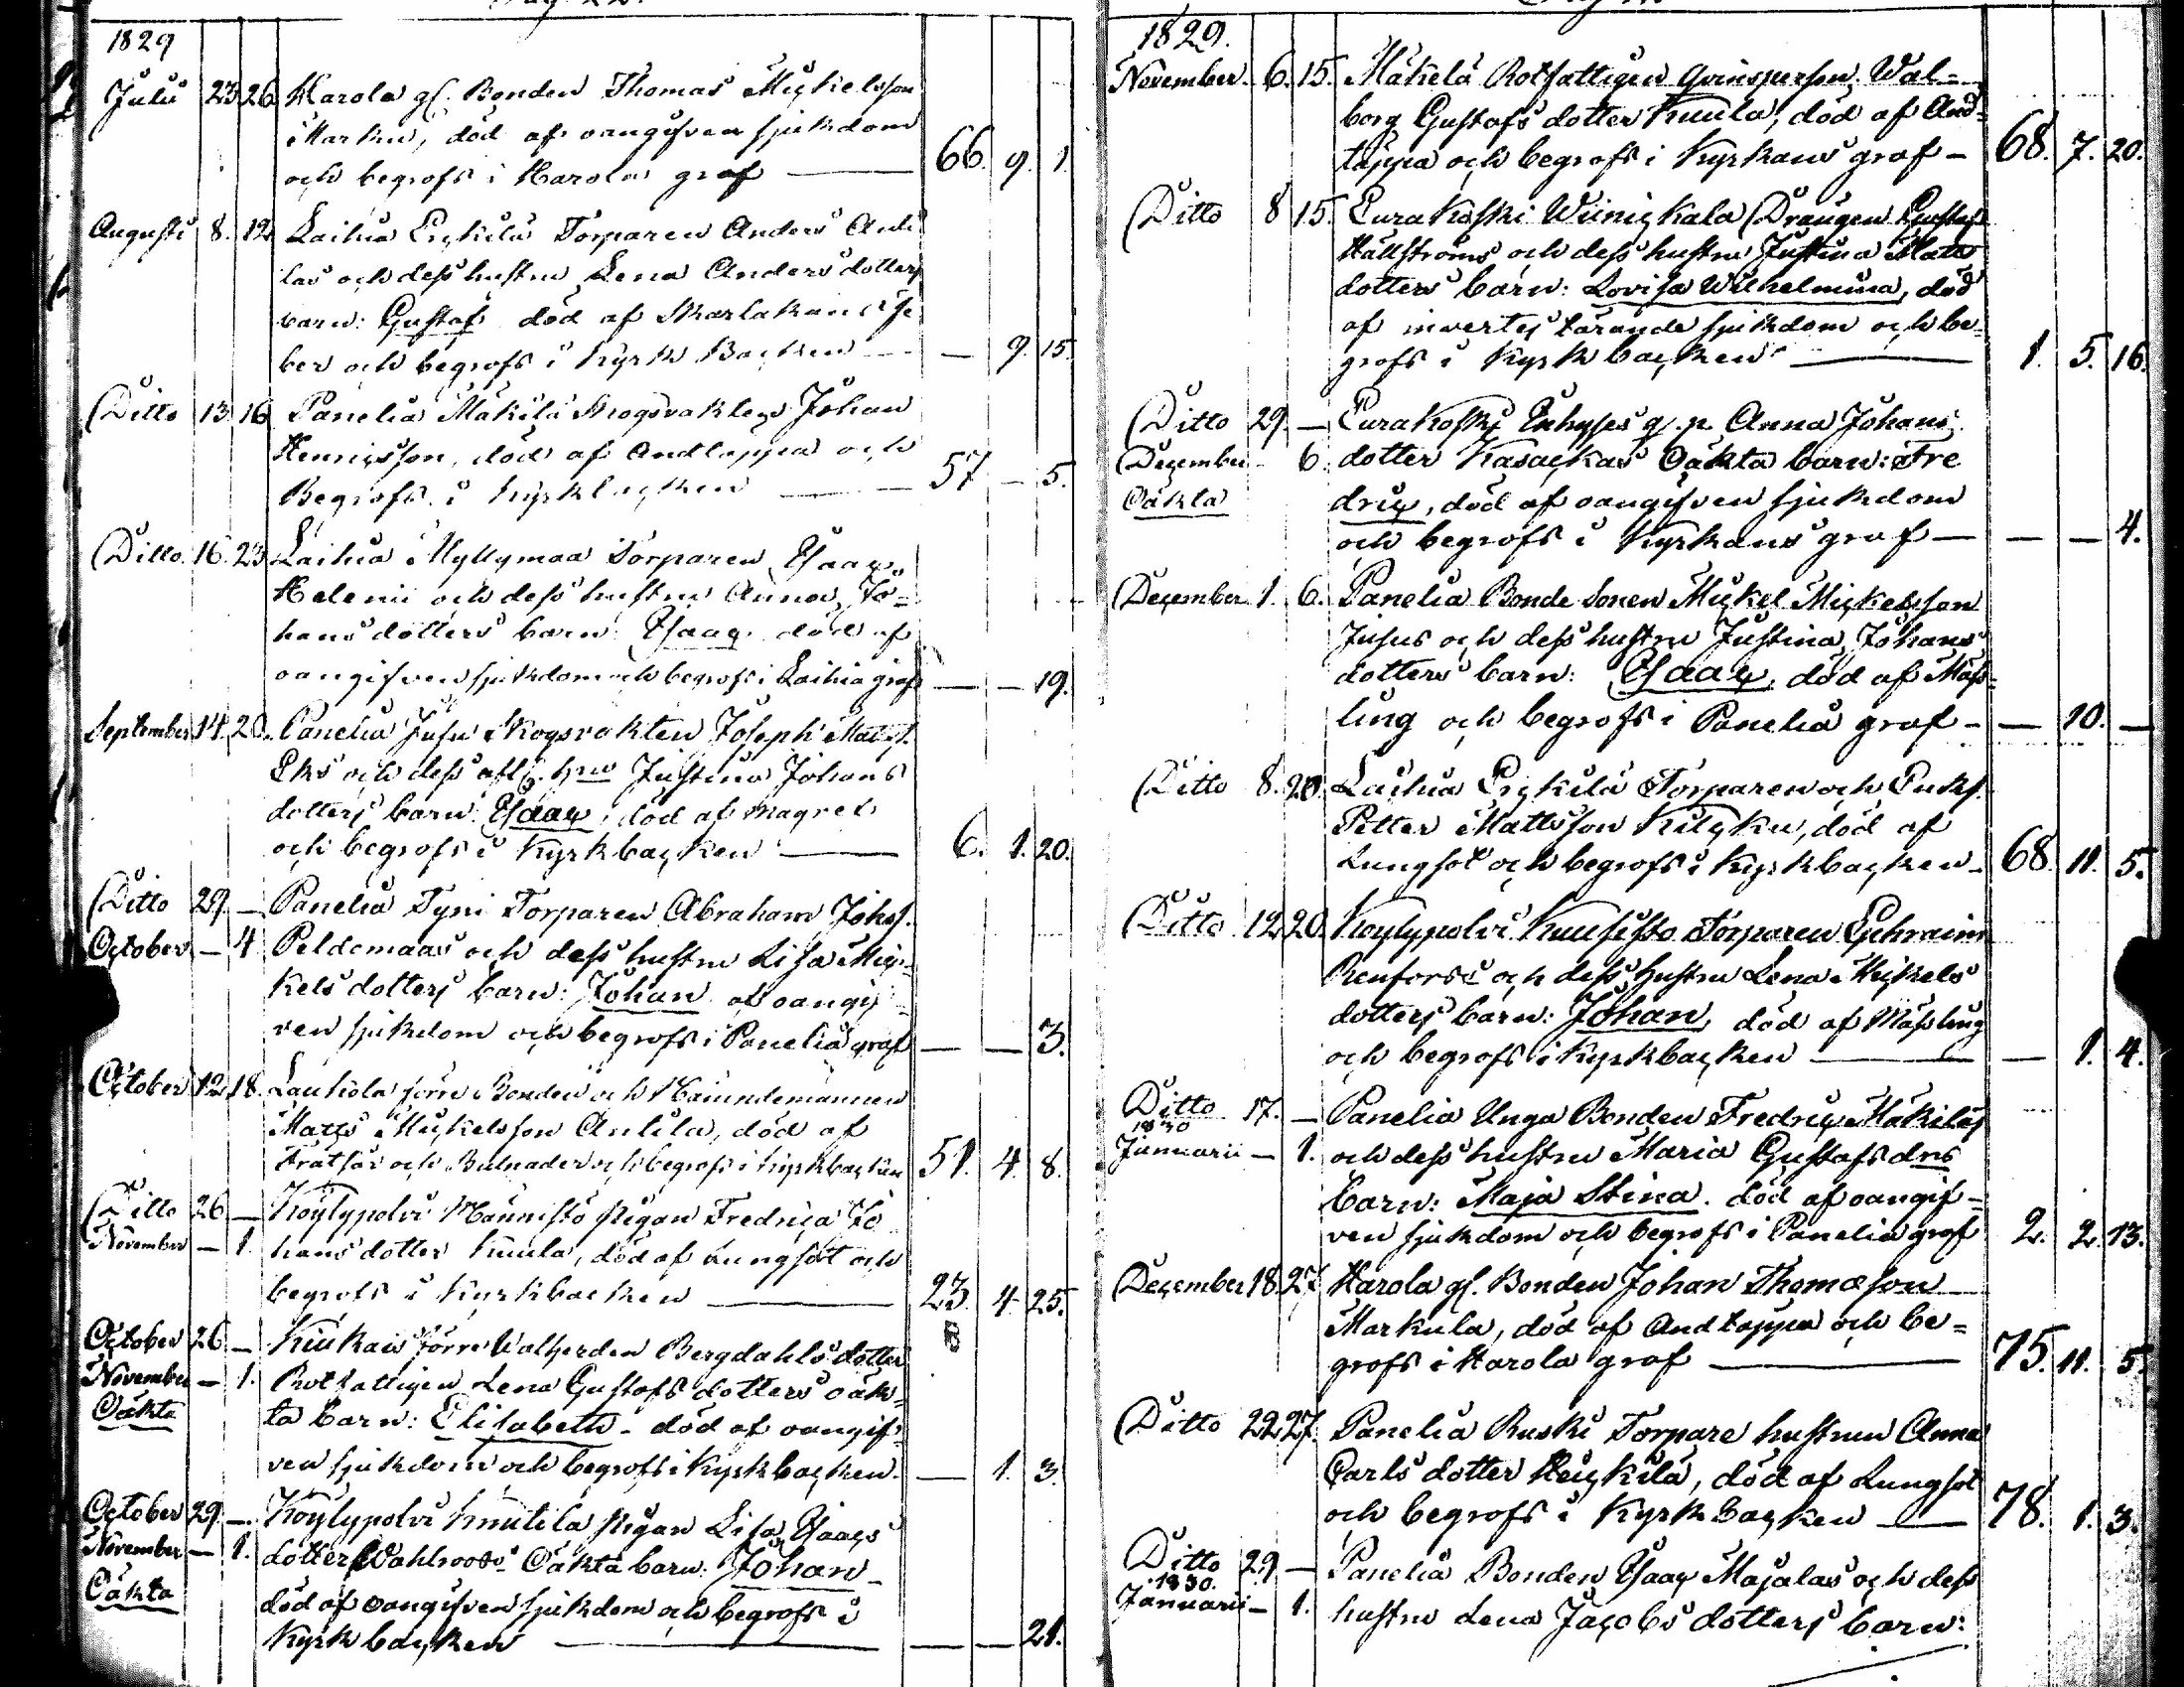 1829
Julii 23 26 Harola gl. Bonden Thomas Mickelsson
Marken, död af oangifven sjukdom
och begrofs i Harola graf — 66. 9. 1.
Augusti 8. 12 Laihia Erckilä Torparen Anders Anti
las och dess hustru Lena Anders dotters
barn: Gustaf död af Skarlakans fe
ber och begrofs i Kyrk Backen — — 9. 15.
Ditto 13 16 Panelia Mäkilä Skogsvakten Johan
Henricsson, död af Andtäppa och
Begrofs i Kyrkbacken — 57 — 5.
Ditto 16. 23 Laihia Myllymaa Torparen Isaac
Helenii och dess hustru Anna Jo=
hans dotters barn: Isaac död af
oangifven sjukdom och begrofs i Laihia graf — — 19.
September 14. 20. Panelia Jusu Skogsvakten Joseph Matts.
Eks och dess afl. hru Justina Johans
dotters barn: Isaac, död af Magref
och begrofs i Kyrkbacken — 6. 1. 20.
Ditto 29. — Panelia Tyni Torparen Abraham Johs.
October — 4 Peldomaas och dess hustru Lisa Mic=
kels dotters barn: Johan af oangif
ven sjukdom och begrofs i Panelia graf — — 3.
October 12 18. Lauhola förre Bonden och Nämndemannen
Matts Mickelsson Anlila, död af
Frätsår och Bulnader och begrofs i Kyrkbacken 51. 4. 8.
Ditto 26 — Köylypolvi Männistö Pigan Fredrica Jo
November — 1. hans dotter Knula, död af Lungsot och
begrofs i Kyrkbacken — 23. 4. 25.
October 26 — Kiukais förre Bergdahls dotter
November — 1. Rotfattigen Lena Gustafs dotters oäk=
Oäkta ta barn: Elisabeth - död af oangif=
ven sjukdom och begrofs i Kyrkbacken. — 1. 3.
October 29. — Köylypolvi Knutila Pigan Lisa Isaacs
November — 1. dotter Wahlroos's Oäkta barn: Johan -
Oäkta död af oangifven sjukdom och begrofs i
Kyrkbacken — — — 21.
1829.
November. 6. 15. Mäkelä Rotfattigen Qvinsperson Wal=
borg Gustafs dotter Knula, död af And=
täppa och begrofs i Kyrkans graf — 68. 7. 20.
Ditto 8 15. Eurakoski Wiinickala Drängen Gustaf
Hällströms och dess hustru Justina Matts
dotters barn: Lovisa Wilhelmina, död
af invertes tärande sjukdom och be=
grofs i Kyrkbacken — 1. 5. 16.
Ditto 29. — Eurakoski Inhyses q. p. Anna Johans
December - 6. dotter Kasackas Oäkta barn: Fre
Oäkta dric, död af oangifven sjukdom
och begrofs i Kyrkans graf — — — 4.
December 1. 6. Panelia Bonde Sonen Mickel Mickelsson
Jusus och dess hustru Justina Johans
dotters barn: Isaac, död af Mäss=
ling och begrofs i Panelia graf — — 10. —
Ditto 8. 20. Laihia Erckilä Torparen och Enkl.
Petter Mattsson Kilcku, död af
Lungsot och begrofs i Kyrkbacken — 68. 11. 5.
Ditto 12 20. Köylypolvi Kuusisto Torparen Ephraim
Renforss och dess Hustru Lena Mickels
dotters barn: Johan, död af Mässling
och begrofs i Kyrkbacken — — 1. 4.
Ditto 17. — Panelia Unga Bonden Fredric Mäkiläs
1830
Januarii — 1. och dess hustru Maria Gustafs drs
barn: Maja Stina. död af oangif=
ven sjukdom och begrofs i Panelia graf 2. 2. 13.
December 18. 27 Harola gl. Bonden Johan Thomæson
Markula, död af Andtäppa och be=
grofs i Harola graf — 75. 11. 5.
Ditto 22 27. Panelia Ruski Torpare hustrun Anna
Carls dotter Heickilä, död af Lungsot
och begrofs i Kyrkbacken — 78. 1. 3.
Ditto 29 — Panelia Bonden Isaac Majalas och dess
1830.
Januarii — 1. hustru Lena Jacobs dotters barn: